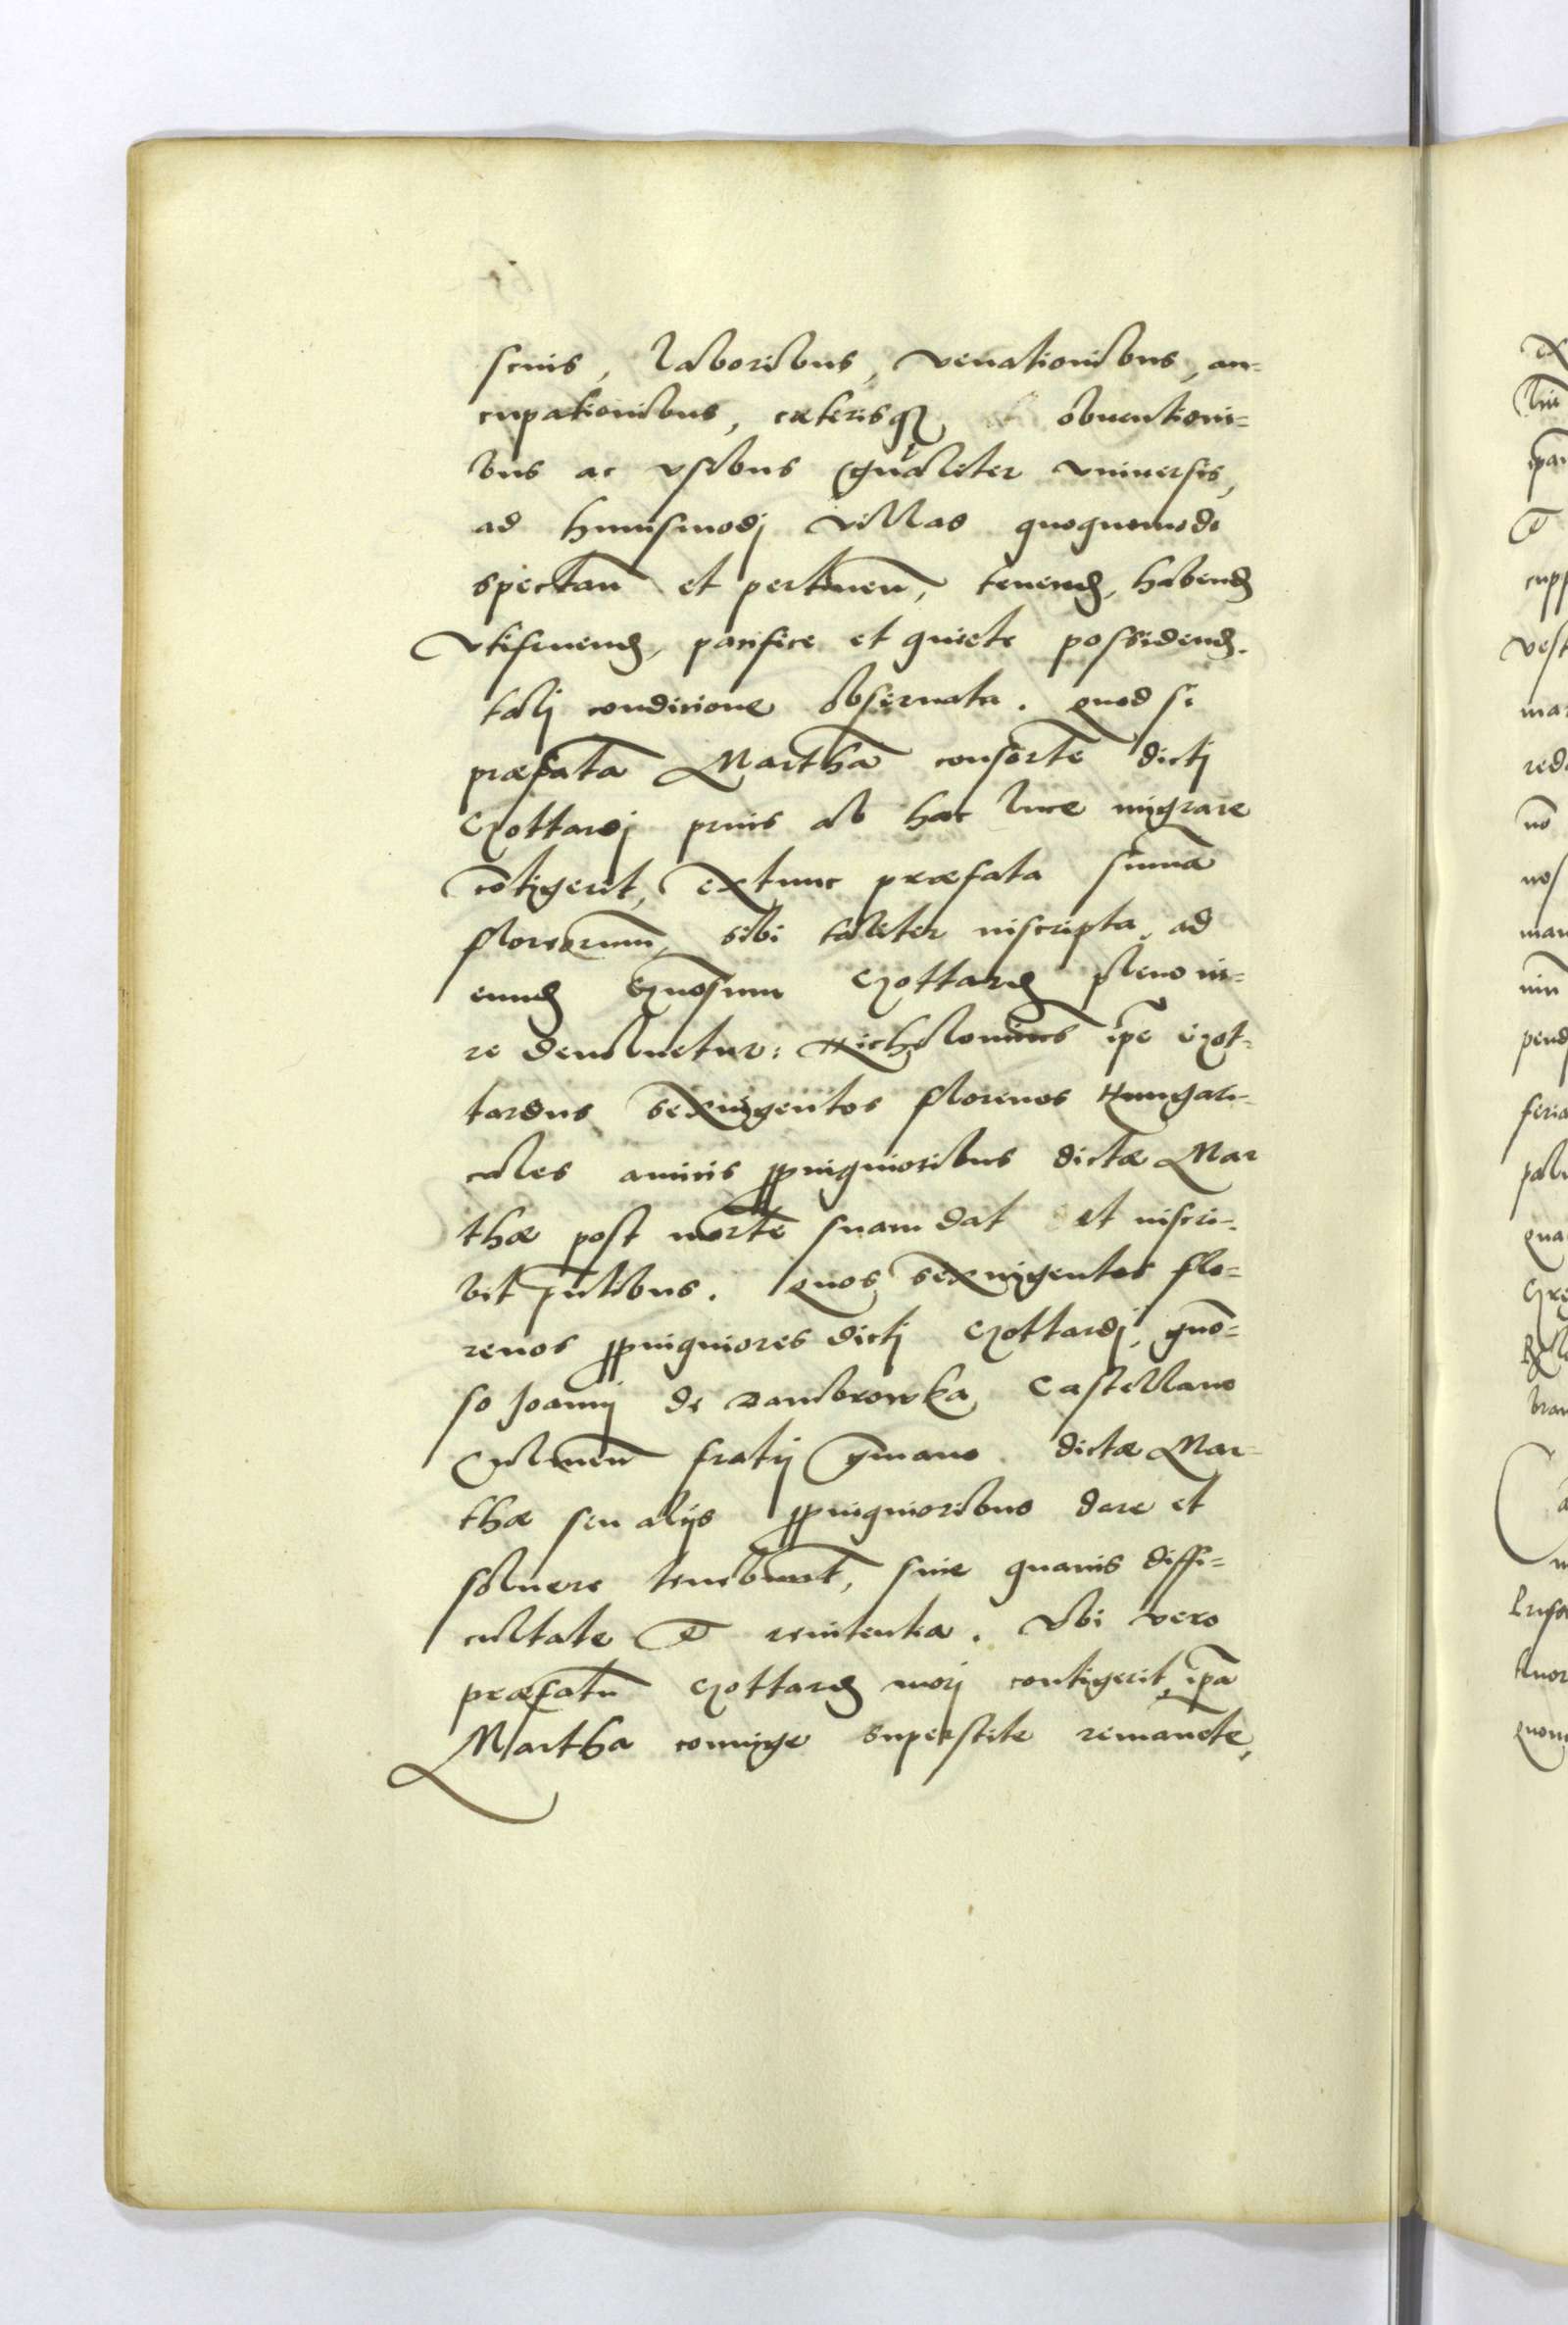 scuis, laboribus, venationibus, au-
cupationibus, cæterisq₃ obuentioni-
bus ac vsibus gn̄aliter vniuersis,
ad huiusmodj villas quoquomodo
spectan̄ et pertinen̄, tenend₃, habend₃
vtifruend₃, pacifice et quiete possidend₃.
talj condicione obseruata. quod si
præfatā Marthā consortē dictj
Gottardj prius ab hac luce migrare
cōtigerit, extunc præfata sum̄a
florenorum, sibi taliter inscripta, ad
eund₃ Gn̄osum Gottard₃ pleno iu-
re deuoluetur: Nicholominus ip̄e Got-
tardus sexingentos florenos Hungari-
cales amicis ꝓpinquioribus dictæ Mar
thæ post mortē suam dat et inscri-
bit p̄ntibus. quos sexingentos flo-
renos ꝓpinquiores dictj Gottardj, gn̄o-
so Joannj de Dambrowka Castellano
Culmen̄ fratrj germano dictæ Mar-
thæ seu alijs ꝓpinquioribus dare et
soluere tenebunt, sine quauis diffi-
cultate et renitentia. Vbi vero
præfatū Gottard₃ morj contigerit, ip̄a
Martha coniuge superstite remanēte,